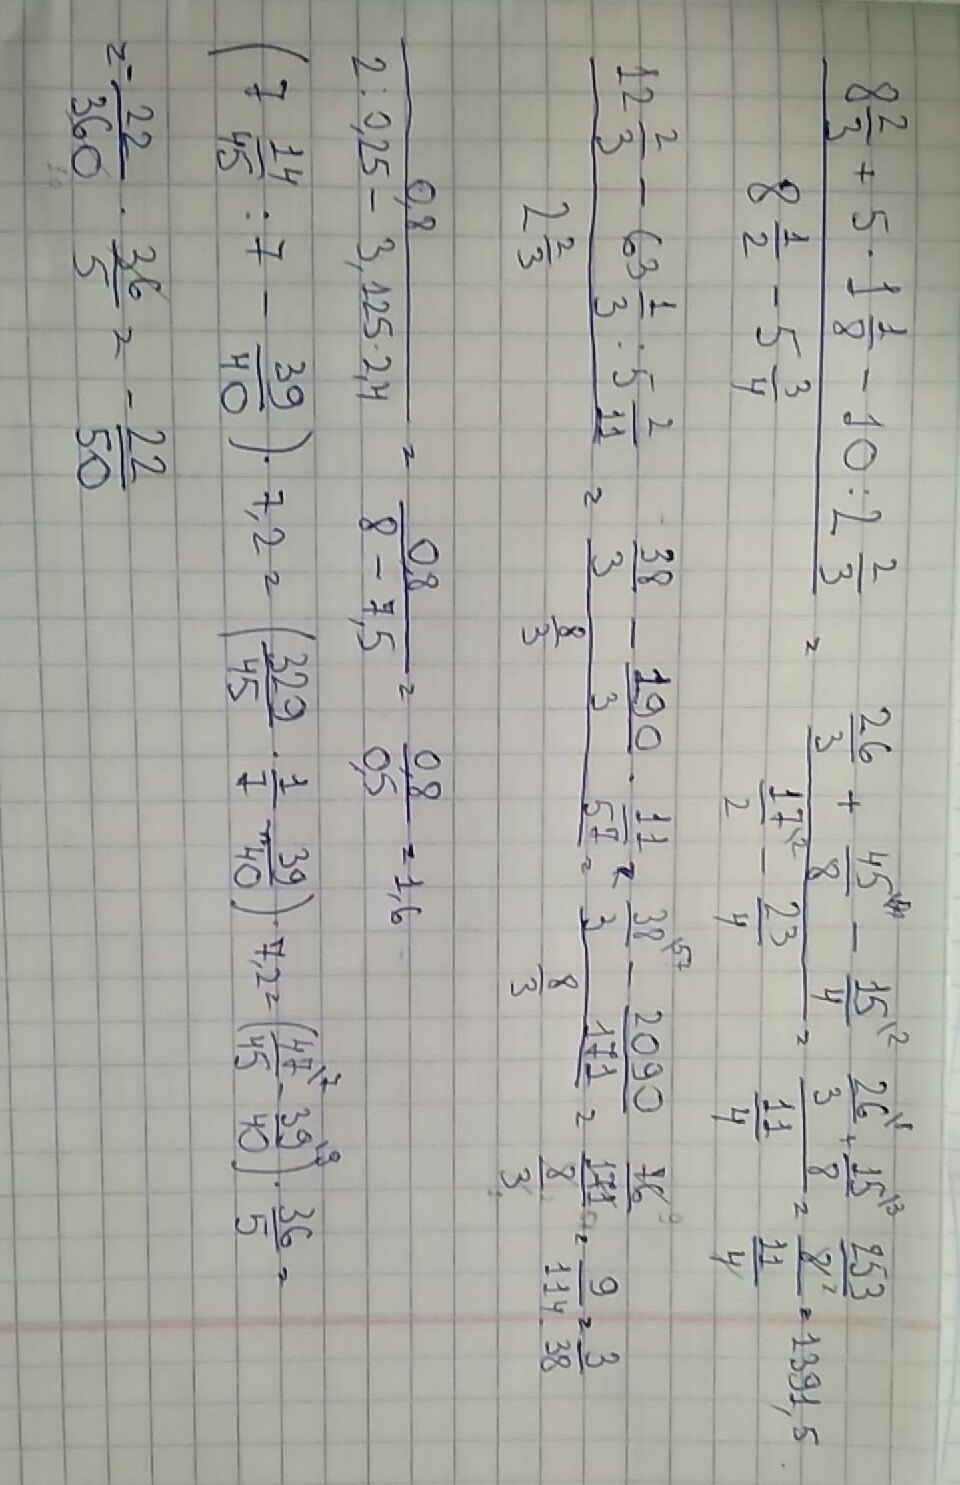 8 2/3 + 5 · 1 1/8 − 10 : 2 2/3 / 8 1/2 − 5 3/4 = 26/3 + 45/8 − 15/4 \2 / 17/2 \2 − 23/4 = 26/3 + 15/8 \3 / 11/4 = 253/8 / 11/4 = 1391,5
12 2/3 − 63 1/3 : 5 2/11 / 2 2/3 = 38/3 − 190/3 · 11/57 / 8/3 = 38/3 \57 − 2090/171 / 8/3 = 76/171 / 8/3 = 9/114 = 3/38
0,8 / 2 : 0,25 − 3,125 · 2,4 = 0,8 / 8 − 7,5 = 0,8 / 0,5 = 1,6
(7 14/45 : 7 − 39/40) · 7,2 = (329/45 · 1/7 − 39/40) · 7,2 = (47/45 \7 − 39/40 \9) · 36/5 =
= − 22/360 · 36/5 = − 22/50